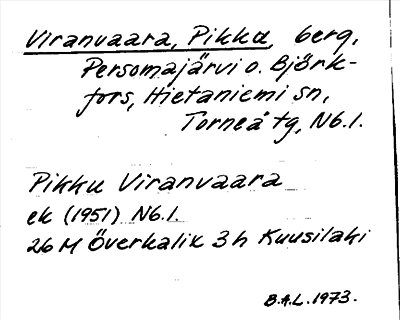 Viranvaara, Pikku, berg,
Persomajärvi o. Björk-
fors, Hietaniemi sn,
Torneå tg, Nb.l.
Pikku Viranvaara
ek (1951) Nb.l.
26 M Överkalix 3h Kuusilaki
B.A.L. 1973.